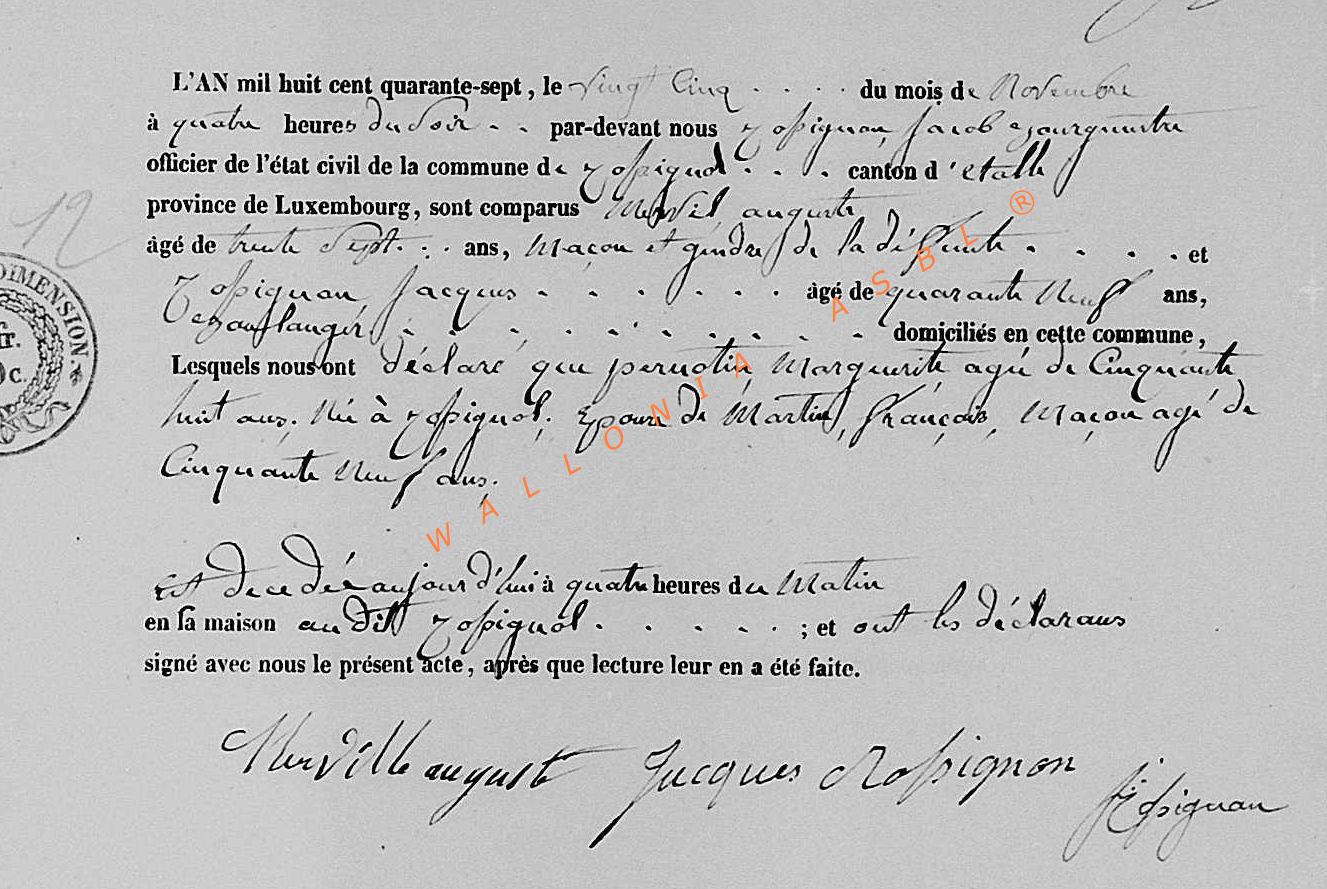 12
DIMENSION
fr.
c.
L'AN mil huit cent quarante-sept, le vingt Cinq . . . . du mois de Novembre
à quatre heures du Soir . . par-devant nous Rossignon Jacob Bourguestre
officier de l'état civil de la commune de Rossignol . . . canton d'etalle
province de Luxembourg, sont comparus Mervil auguste
âgé de trente Sept . . ans, Maçon et gendre de la défunte . . . . et
Rossignon Jacques . . . . . . . âgé de quarante Neuf ans,
Boulanger . . . . . . . . . . domiciliés en cette commune,
Lesquels nous ont déclaré que pernotin Marguerite agée de Cinquante
huit ans. Née à Rossignol. Epouse de Martin, françois, Maçon agé de
Cinquante Neuf ans.
est decedée aujourd'hui à quatre heures du Matin
en sa maison au Dit Rossignol . . . . . ; et ont les déclarans
signé avec nous le présent acte, après que lecture leur en a été faite.
Merville auguste Jacques Rossignon
J: Rossignon
WALLONIA ASBL ®